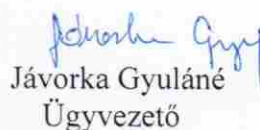 Jávorka Gyuláné
Ügyvezető